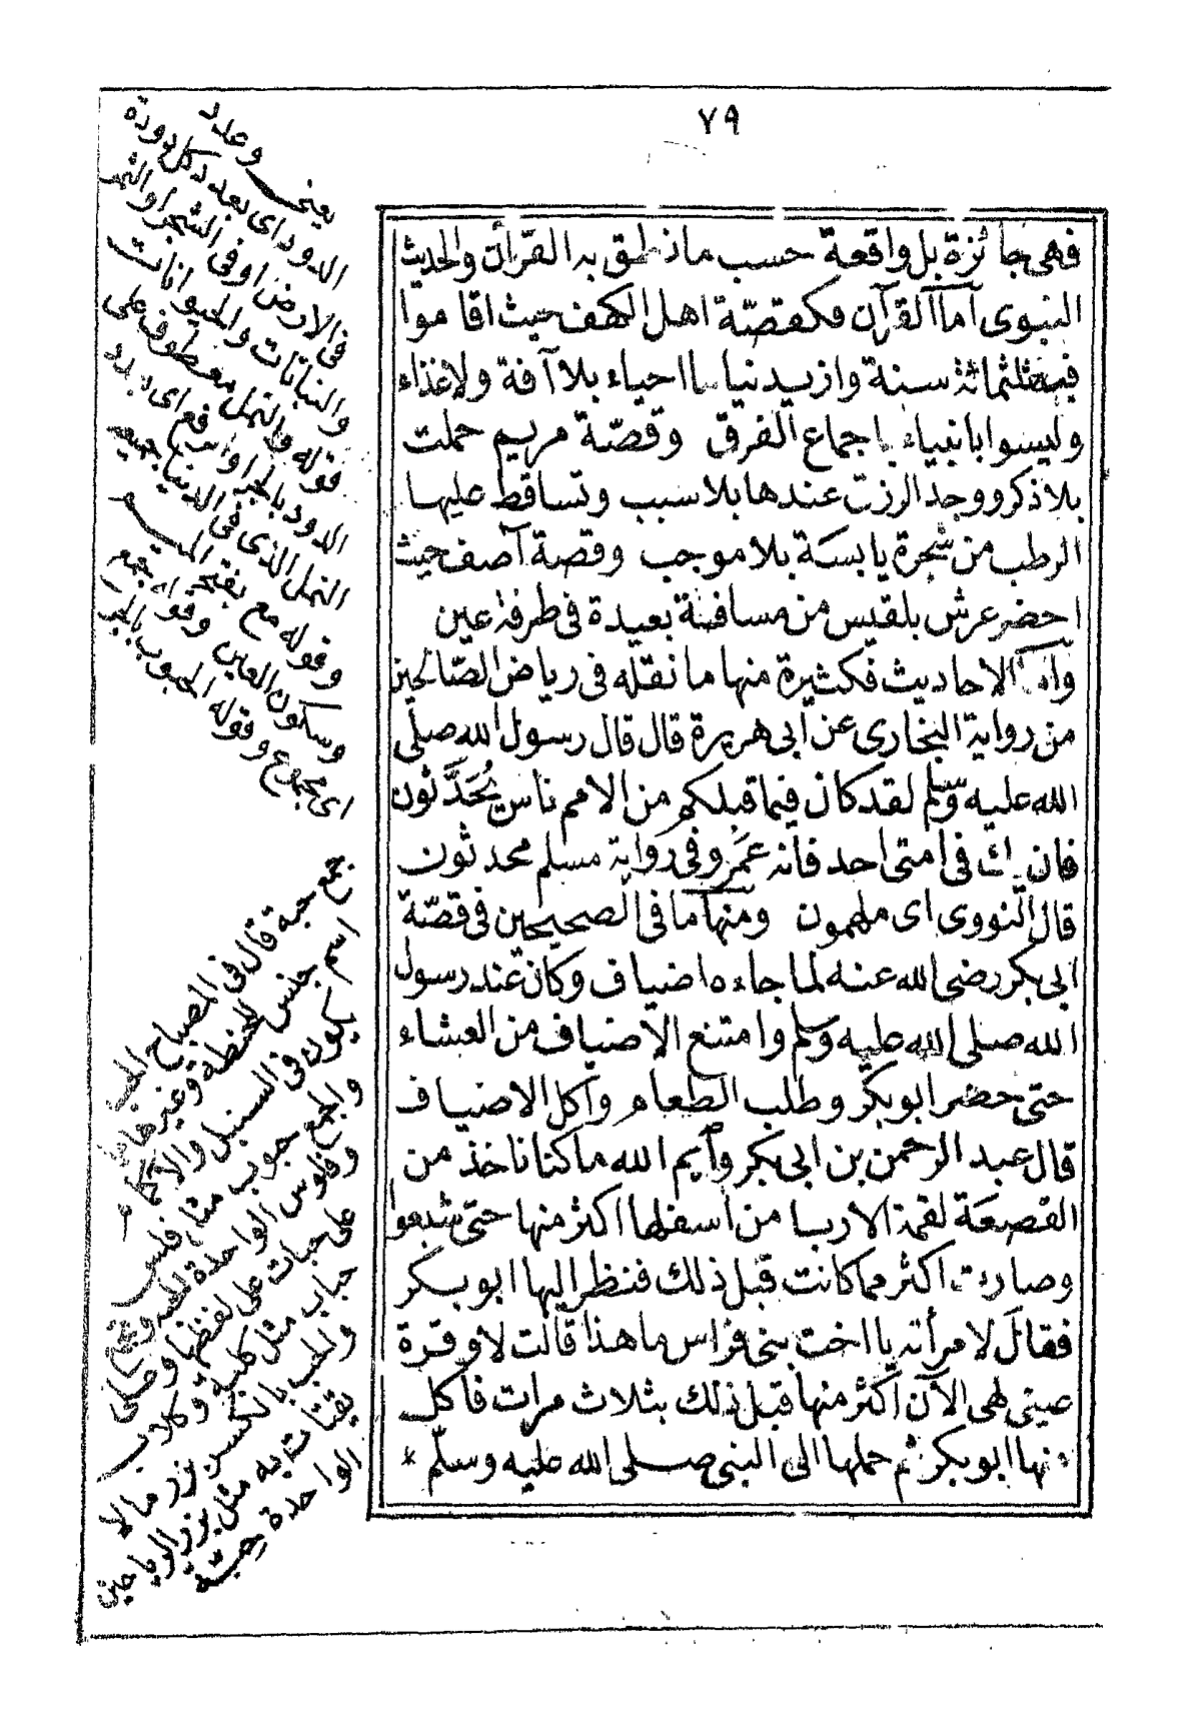 ٧٩
فهى جائزة بل واقعة حسب ما نطق به القرأن والحديث
النبوى اما القرآن فكقصّة اهل الكهف حيث اقاموا
فيه ثلثمائة سنة وازيد نياما احياء بلا آفة ولا غذاء
وليسوا بانبياء باجماع الفرق وقصّة مريم حملت
بلا ذكر ووجد الرزق عندها بلا سبب وتساقط عليها
الرطب من شجرة يابسة بلا موجب وقصة آصف حيث
احضر عرش بلقيس من مسافة بعيدة فى طرفة عين
وآما الاحاديث فكثيرة منها ما نقله فى رياض الصّالحين
من رواية البخارى عن ابى هريرة قال قال رسول الله صلى
الله عليه وسلم لقد كان فيما قبلكم من الامم ناس يُحَدَّثون
فان يك فى امتى احد فانه عمر وفى رواية مسلم محدثون
قال النووى اى ملهمون ومنها ما فى الصحيحين فى قصّة
ابى بكر رضى الله عنه لما جاءه اضياف وكان عند رسول
الله صلى الله عليه وسلم وامتنع الاضياف من العشاء
حتى حضر ابو بكر وطلب الطعام وآكل الاضياف
قال عبد الرحمن بن ابى بكر وآيم الله ما كنا ناخذ من
القصعة لقمة الا ربا من اسفلها اكثر منها حتى شبعوا
وصارت اكثر مما كانت قبل ذلك فنظر اليها ابو بكر
فقال لامرأته يا اخت بنى فراس ما هذا قالت لا وقرة
عينى لهى الآن اكثر منها قبل ذلك بثلاث مرات فاكل
منها ابو بكر ثم حملها الى النبى صلى الله عليه وسلّم *
يعنى وعدد
الدود اى بعدد كل دودة
فى الارض او فى الشجر او الثمر
والنباتات والحيوانات
قوله والنمل معطوف على
الدود بالجر او الرفع اى وعدد
النمل الذى فى الدنيا جميعه
وقوله مع بفتح الميم
وسكون العين وقوله جمع
اى مجموع وقوله الحبوب بالجر
جمع حبة قال فى المصباح الحب
اسم جنس للحنطة وغيرها مما
يكون فى السنبل والاكمام
والجمع حبوب مثل فلس
وفلوس الواحدة حبة وتجمع
على حبات على لفظها وعلى
حباب مثل كلبة وكلاب
والحب بالكسر بزر ما لا
يقتات به مثل بزر الرياحين
الواحدة حِبّة